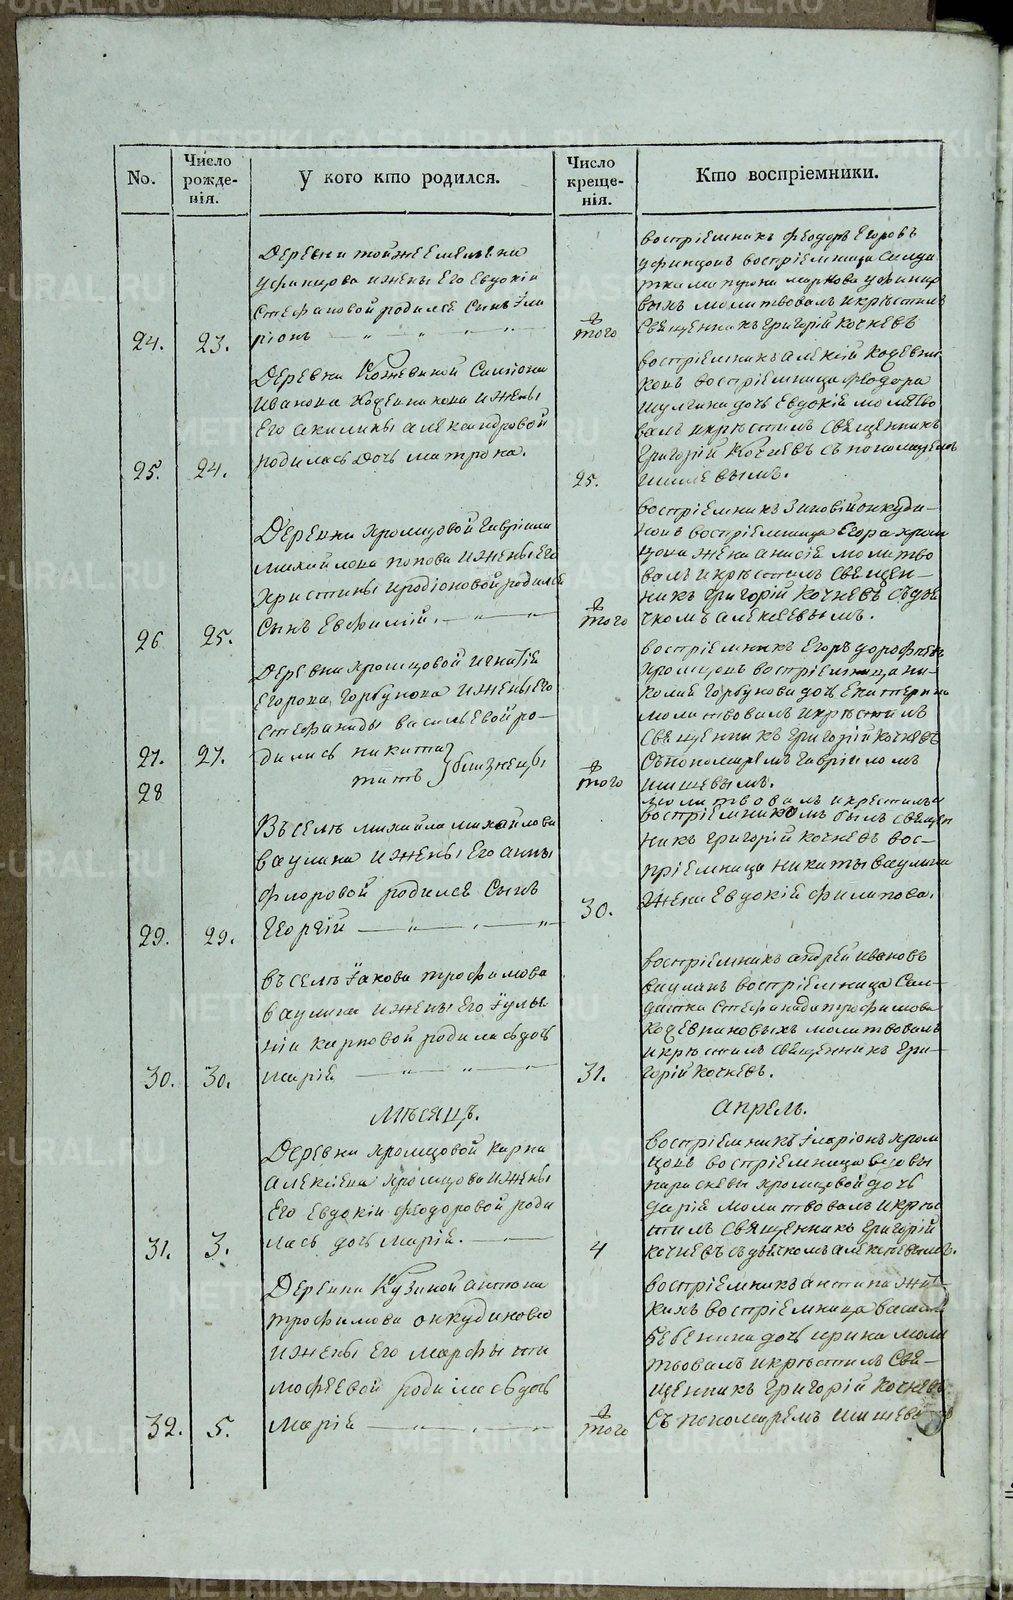 METRIKI.GASO-URAL.RU
No.
Число рожде-нія.
У кого кто родился.
Число креще-нія.
Кто воспріемники.
24.
23.
Деревни тойже Емелѣяна
Уфинцова и жены Его Евдокіи
Стефановой родился Сынъ Ила
ріонъ
того
воспріемникъ Феодоръ Егоровъ
Уфинцовъ воспріемница Солда
тка
молитвовалъ и крѣстилъ
Священникъ Григорій Кочневъ
25.
24.
Деревни Кожевиной Симіона
Иванова Кожевникова и жены
Его Акилины Александровой
родилась дочь матрона.
25.
воспріемникъ алексій Кожевни
ковъ воспріемница Феодора
Шулгина дочь Евдокія молитво
валъ и крѣстилъ священникъ
Григорій Кочневъ съ пономаремъ
Шишевымъ.
26
25.
Деревни Хромцовой Гавріила
михайлова попова и жены Его
Христины Иродіоновой родился
Сынъ Евфимій.
того
воспріемникъ Зиновій онкуди-
новъ воспріемница Егора хром
цова жена анисія молитво
валъ и крѣстилъ Священ-
никъ Григорій Кочневъ съ дья
чкомъ алексеевымъ.
27.
28
27.
Деревни Хромцовой Игнатія
Егорова Горбунова и жены Его
Стефаниды васильевой ро-
дились никита
титъ } близнецы
того
воспріемникъ Егоръ дорофеевъ
Хромцовъ воспріемница ни-
колая Горбунова дочь Екатерина
молитвовалъ и крѣстилъ
Священникъ Григорій Кочневъ
Съ пономаремъ Гавріиломъ
Шишевымъ.
29.
29.
Въ селѣ михаила михайлова
ваулина и жены Его анны
Флоровой родился Сынъ
Георгій
30.
молитвовалъ и крестилъ и
воспріемникомъ былъ священ
никъ Григорій Кочневъ вос-
пріемница никиты ваулина
жена Евдокія филипова.
30.
30.
въ селѣ Іакова трофимова
ваулина и жены Его Іулья
ніи карповой родилась дочь
марія
31.
воспріемникъ андрей ивановъ
ваулинъ воспріемница Сол-
датка Стефанида трофимова
Кожевниковыхъ молитвовалъ
и крѣстилъ священникъ Гри-
горій Кочневъ.
мѣсяцъ.
апрель.
31.
3.
Деревни Хромцовой карпа
алексѣева Хромцова и жены
Его Евдокіи Феодоровой роди
лась дочь марія.
4
воспріемникъ Іларіонъ хром
цовъ воспріемница вдовы
параскевы хромцовой дочь
дарія молитвовалъ и крѣс
тилъ священникъ Григорій
кочневъ съ дьячкомъ алексеевымъ.
32.
5.
Деревни Кузиной антона
трофимова онкудинова
и жены Его Марфы ти
мофеевой родилась дочь
марія
того
воспріемникъ антипа
воспріемница
дочь ирина моли
твовалъ и крѣстилъ Свя-
щенникъ Григорій Кочневъ
Съ пономаремъ Шишевы